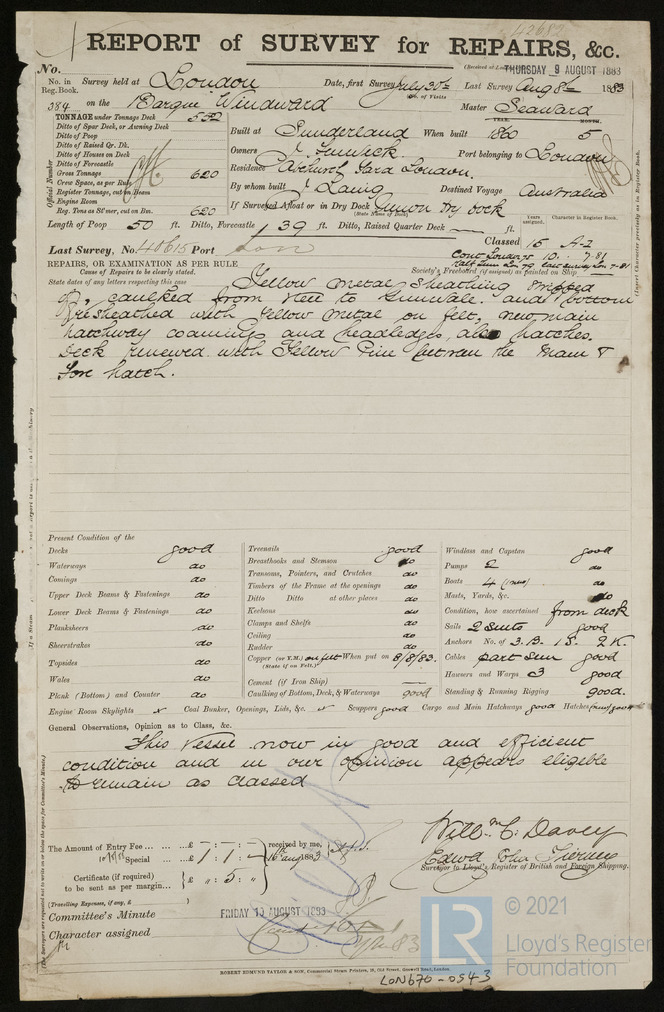 REPORT of SURVEY for REPAIRS, &c.
No.
(Received at
THURSDAY 9 AUGUST 1883
No. in Reg. Book. Survey held at London Date, first Survey July 30th Last Survey Aug 8th 1883
384 on the Barque Windward Master Seaward
TONNAGE under Tonnage Deck 552
Ditto of Spar Deck, or Awning Deck
Ditto of Poop
Ditto of Raised Qr. Dk.
Ditto of Houses on Deck
Ditto of Forecastle
Gross Tonnage 620
Crew Space, as per Rule
Register Tonnage, cut on Beam
Engine Room
Reg. Tons as St'mer, cut on Bm. 620
Official Number
Built at Sunderland When built YEAR. 1860 MONTH. 5
Owners J. Fenwick Port belonging to London
Residence Abchurch Yard London.
By whom built J Laing Destined Voyage Australia
If Surveyed Afloat or in Dry Dock Union Dry Dock
(State Name of Dock)
Length of Poop 50 ft. Ditto, Forecastle 39 ft. Ditto, Raised Quarter Deck ft.
Years assigned. Character in Register Book.
Last Survey, No. 40615 Port Lon Classed 15 A-1
REPAIRS, OR EXAMINATION AS PER RULE
Society's Freeboard (if assigned) as painted on Ship
Cause of Repairs to be clearly stated.
State dates of any letters respecting this case
Yellow metal sheathing stripped
off, caulked from Keel to Gunwale. and bottom
resheathed with Yellow Metal on felt, new main
hatchway coamings and headledges, also hatches.
Deck renewed with Yellow Pine between the Main &
Fore hatch.
Present Condition of the
Decks good
Waterways do
Comings do
Upper Deck Beams & Fastenings do
Lower Deck Beams & Fastenings do
Planksheers do
Sheerstrakes do
Topsides do
Wales do
Plank (Bottom) and Counter do
Treenails good
Breasthooks and Stemson do
Transoms, Pointers, and Crutches do
Timbers of the Frame at the openings do
Ditto Ditto at other places do
Keelsons do
Clamps and Shelfs do
Ceiling do
Rudder do
Copper (or Y.M.) on felt When put on 8/8/83.
(State if on Felt.)
Cement (if Iron Ship)
Caulking of Bottom, Deck, & Waterways good
Windlass and Capstan good
Pumps 2 do
Boats 4 do
Masts, Yards, &c. do
Condition, how ascertained from deck
Sails 2 Suits good
Anchors No. of 3.B. 1S. 2K.
Cables part seen good
Hawsers and Warps 3 good
Standing & Running Rigging good.
Engine Room Skylights x Coal Bunker, Openings, Lids, &c. Scuppers good Cargo and Main Hatchways good Hatches (new) good
General Observations, Opinion as to Class, &c.
This Vessel now in good and efficient
condition and in our opinion appears eligible
to remain as classed
Willm C. Davey
Edwd John Tierney
Surveyor to Lloyd's Register of British and Foreign Shipping.
The Amount of Entry Fee ... ... £ - : - : - received by me,
Special ... ... £ 1 : 1 : - 16th Aug 1883
Certificate (if required) to be sent as per margin... £ " : 5 : "
(Travelling Expenses, if any, £ )
Committee's Minute FRIDAY 10 AUGUST 1883
Character assigned
ROBERT EDMUND TAYLOR & SON, Commercial Steam Printers, 19, Old Street, Goswell Road, London.
LON670-0543
LR
© 2021
Lloyd's Register
Foundation